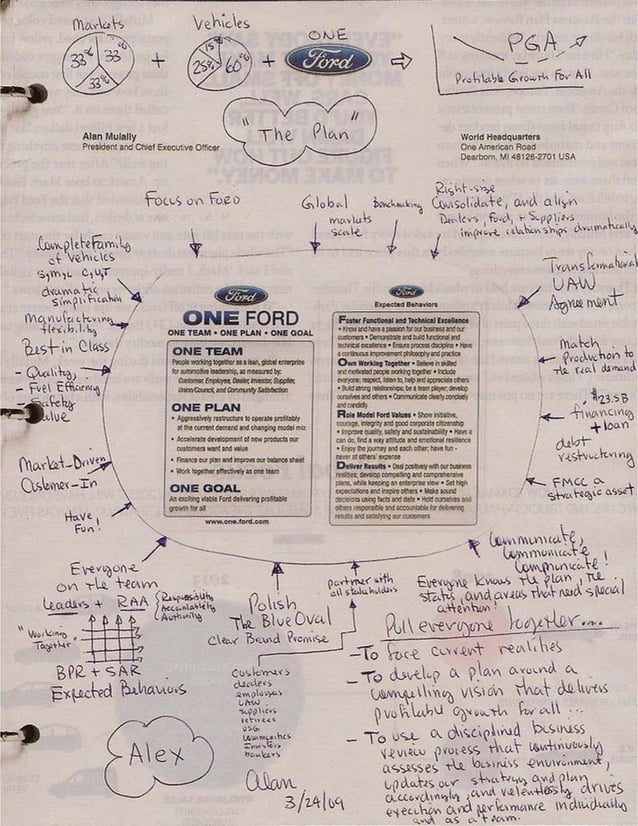 Markets
Vehicles
ONE
33% 33% 33%
+
15% 25% 60%
+
Ford
PGA
Profitable Growth For All
"The Plan"
Alan Mulally
President and Chief Executive Officer
World Headquarters
One American Road
Dearborn, MI 48126-2701 USA
Focus on FORD
Global
markets
scale
Benchmarking
Right-size
Consolidate, and align
Dealers, Ford, + Suppliers
improve relationships dramatically
Complete Family
of Vehicles
S,M,L C,U,T
dramatic
simplification
Manufacturing
flexibility
Best in Class
- Quality,
- Fuel Efficiency
- Safety
Value
Market-Driven
Customer-In
Have
Fun!
Everyone
on the team
Leaders + RAA
Responsibility
Accountability
Authority
"Working
Together"
BPR + SAR
Expected Behaviors
Ford
ONE FORD
ONE TEAM • ONE PLAN • ONE GOAL
ONE TEAM
People working together as a lean, global enterprise
for automotive leadership, as measured by:
Customer, Employee, Dealer, Investor, Supplier,
Union/Council, and Community Satisfaction
ONE PLAN
• Aggressively restructure to operate profitably
at the current demand and changing model mix
• Accelerate development of new products our
customers want and value
• Finance our plan and improve our balance sheet
• Work together effectively as one team
ONE GOAL
An exciting viable Ford delivering profitable
growth for all
www.one.ford.com
Ford
Expected Behaviors
Foster Functional and Technical Excellence
• Know and have a passion for our business and our
customers • Demonstrate and build functional and
technical excellence • Ensure process discipline • Have
a continuous improvement philosophy and practice
Own Working Together • Believe in skilled
and motivated people working together • Include
everyone; respect, listen to, help and appreciate others
• Build strong relationships; be a team player; develop
ourselves and others • Communicate clearly, concisely
and candidly
Role Model Ford Values • Show initiative,
courage, integrity and good corporate citizenship
• Improve quality, safety and sustainability • Have a
can do, find a way attitude and emotional resilience
• Enjoy the journey and each other; have fun -
never at others' expense
Deliver Results • Deal positively with our business
realities; develop compelling and comprehensive
plans, while keeping an enterprise view • Set high
expectations and inspire others • Make sound
decisions using facts and data • Hold ourselves and
others responsible and accountable for delivering
results and satisfying our customers
Transformational
UAW
Agreement
Match
Production to
the real demand
$23.5B
financing
+ loan
debt
restructuring
FMCC a
strategic asset
Communicate,
Communicate
Communicate!
Everyone knows the plan, the
status, and areas that need special
attention!
Polish
The Blue Oval
Clear Brand Promise
partner with
all stakeholders
Customers
dealers
employees
UAW
suppliers
retirees
USG
communities
Investors
bankers
Pull everyone together....
- To face current realities
- To develop a plan around a
compelling vision that delivers
profitable growth for all...
- To use a disciplined business
review process that continuously
assesses the business environment,
updates our strategy and plan
accordingly, and relentlessly drives
execution and performance individually
and as a team.
Alex
Alan
3/24/09